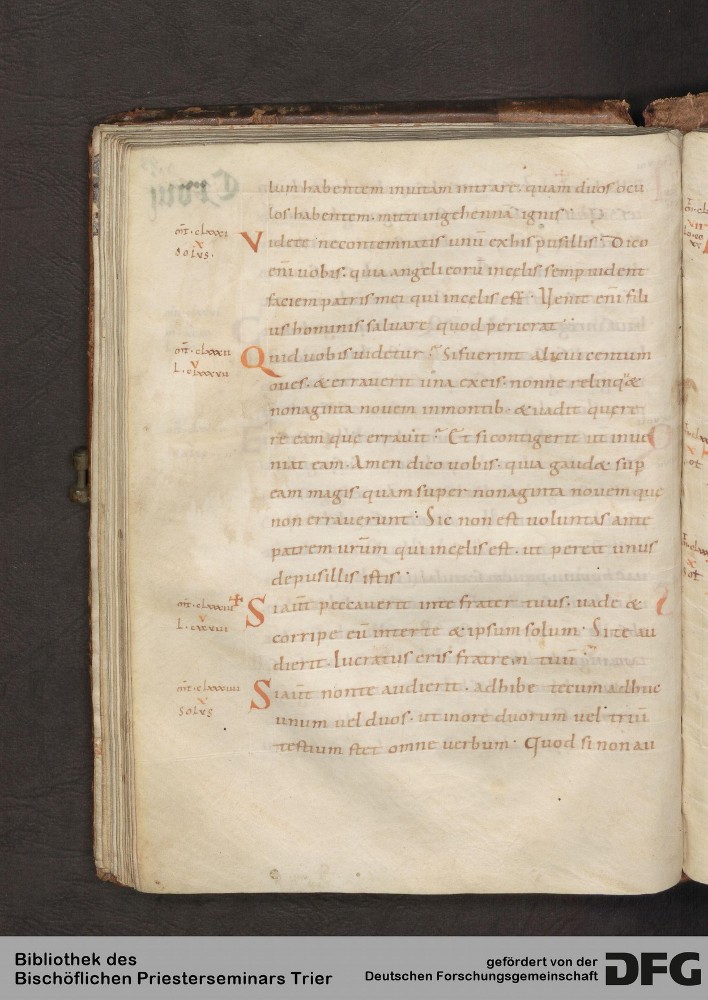 lum habentem in uitam intrare. quam duos ocu
los habentem. mitti in gehennā ignis.
mt. clxxxi
x
solus.
Videte ne contemnatis unū ex his pusillis. Dico
enī uobis. quia angeli eorū in cęlis semp uident
faciem patris mei qui in cęlis est. Venit enī fili
us hominis saluare quod perierat.
mt. clxxxii
v
L. clxxxvii
Quid uobis uidetur? Si fuerint alicui centum
oues. & errauerit una ex eis. nonne relinq&
nonaginta nouem in montib. & uadit quere
re eam que errauit? Et si contigerit ut inue
niat eam. Amen dico uobis. quia gaud& sup
eam magis quam super nonaginta nouem que
non errauerunt. Sic non est uoluntas ante
patrem urūm qui in cęlis est. ut pereat unus
de pusillis istis.
mt. clxxxiii
v
L. cxcviii
Si aūt peccauerit in te frater tuus. uade &
corripe eū inter te & ipsum solum. Si te au
dierit. lucratus eris fratrem tuū.
mt. clxxxiiii
x
solus
Si aūt non te audierit. adhibe tecum adhuc
unum uel duos. ut in ore duorum uel triū
testium stet omne uerbum. Quod si non au
Bibliothek des
Bischöflichen Priesterseminars Trier
gefördert von der
Deutschen Forschungsgemeinschaft
DFG